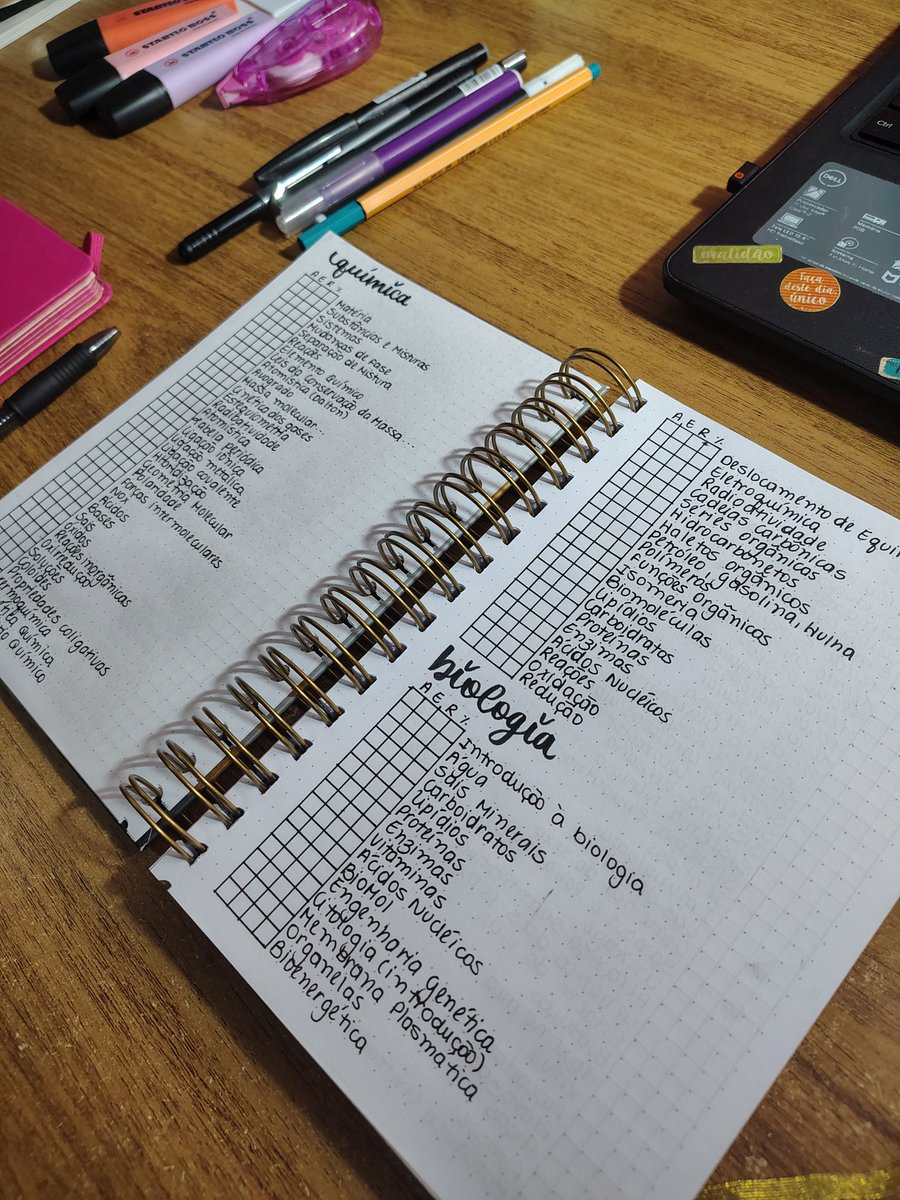 STABILO BOSS
STABILO BOSS
STABILO BOSS
Ctrl
DELL
Processador
Memória
8GB
Tela LED 15.6"
Sistema
gratidão
Faça
deste dia,
único
química
A.E.R.%
Matéria
Substâncias e Misturas
Sistemas
Mudanças de Fase
Separação de Mistura
Reações
Elemento Químico
Leis da Conservação da Massa...
Atomística (Dalton)
Avogrado
Massa molecular
Cinética dos gases
Estequiometria
Radioatividade
Atomística
Tabela periódica
Ligação iônica
Ligação metálica
Ligação covalente
Hibridização
Geometria Molecular
Polaridade
Forças Intermoleculares
NOX
Ácidos
Bases
Sais
Óxidos
Reações inorgânicas
Oxirredução
Soluções
Coloides
Propriedades coligativas
Química
Químico
A.E.R.%
Deslocamento de Equi
Eletroquímica
Radioatividade
Cadeias carbônicas
Séries orgânicas
Hidrocarbonetos
Haletos orgânicos
Petróleo, gasolina, Hulha
Polímeros
Funções Orgânicas
Isomeria
Biomoléculas
Lipídios
Carboidratos
Proteínas
Enzimas
Ácidos Nucléicos
Reações
Oxidação
Redução
biologia
A.E.R.%
Introdução à biologia
Água
Sais Minerais
Carboidratos
Lipídios
Proteínas
Enzimas
Vitaminas
Ácidos Nucléicos
BIOMOl
Engenharia genética
Citologia (introdução)
Membrana Plasmática
Organelas
Bioenergética